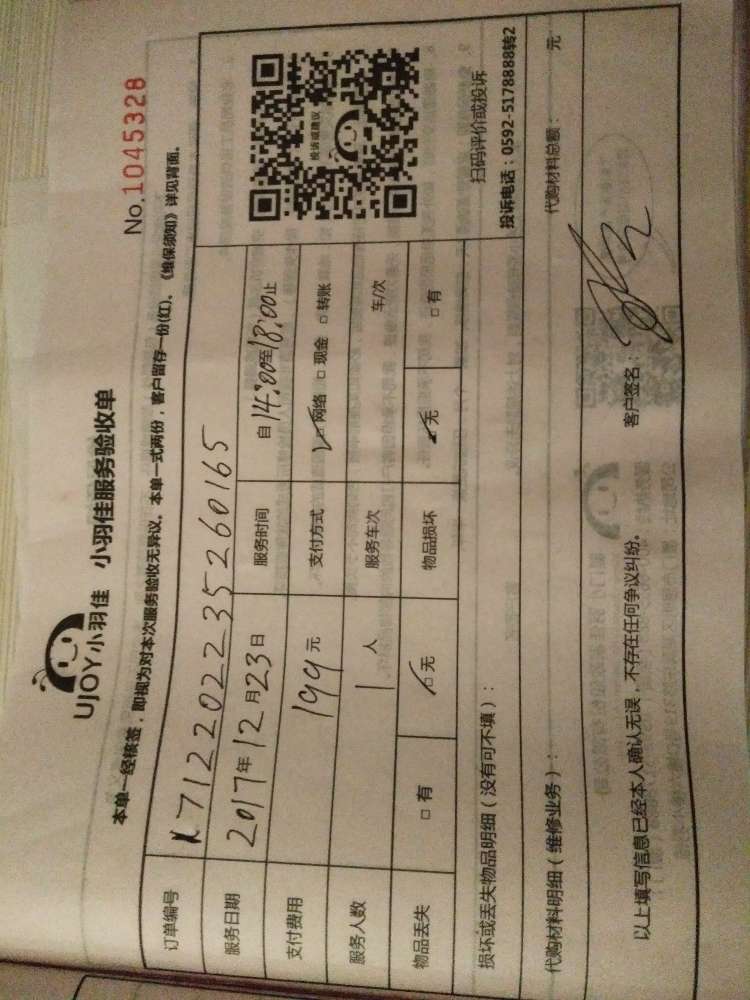 UJOY小羽佳 小羽佳服务验收单
No.1045328
本单一经核签，即视为对本次服务验收无异议。本单一式两份，客户留存一份(红)。《维保须知》详见背面。
订单编号 712202235260165
服务日期 2017年12月23日 服务时间 自14:00至18:00止
支付费用 199元 支付方式 网络 现金 转账
服务人数 1人 服务车次 车/次
物品丢失 有 无 物品损坏 无 有
投诉或建议
扫码评价或投诉
投诉电话：0592-5178888转2
损坏或丢失物品明细（没有可不填）：
代购材料明细（维修业务）： 代购材料总额： 元
以上填写信息已经本人确认无误，不存在任何争议纠纷。 客户签名：